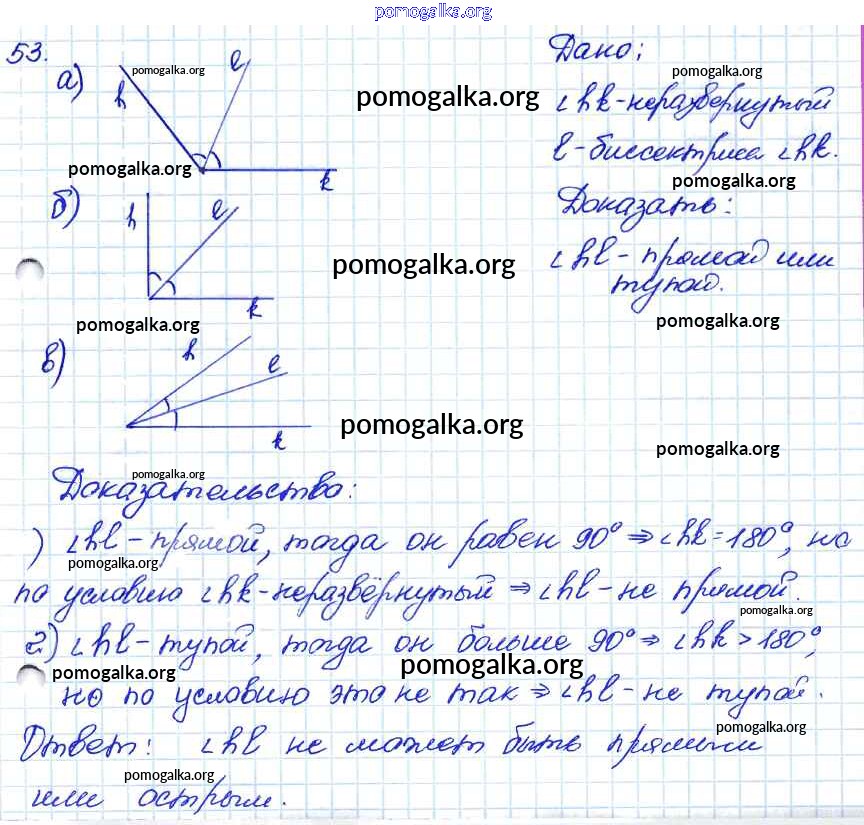 pomogalka.org
53.
а)
h
l
k
pomogalka.org
pomogalka.org
pomogalka.org
Дано:
pomogalka.org
∠hk-неразвернутый
l-биссектриса ∠hk.
pomogalka.org
Доказать:
∠hl - прямой или
тупой.
pomogalka.org
б)
h
l
k
pomogalka.org
pomogalka.org
в)
h
l
k
pomogalka.org
pomogalka.org
pomogalka.org
Доказательство:
) ∠hl - прямой, тогда он равен 90° ⇒ ∠hk = 180°, но
pomogalka.org
по условию ∠hk-неразвёрнутый ⇒ ∠hl - не прямой.
pomogalka.org
2) ∠hl - тупой, тогда он больше 90° ⇒ ∠hk > 180°,
pomogalka.org
pomogalka.org
но по условию это не так ⇒ ∠hl - не тупой.
pomogalka.org
Ответ: ∠hl не может быть прямым
pomogalka.org
или острым.